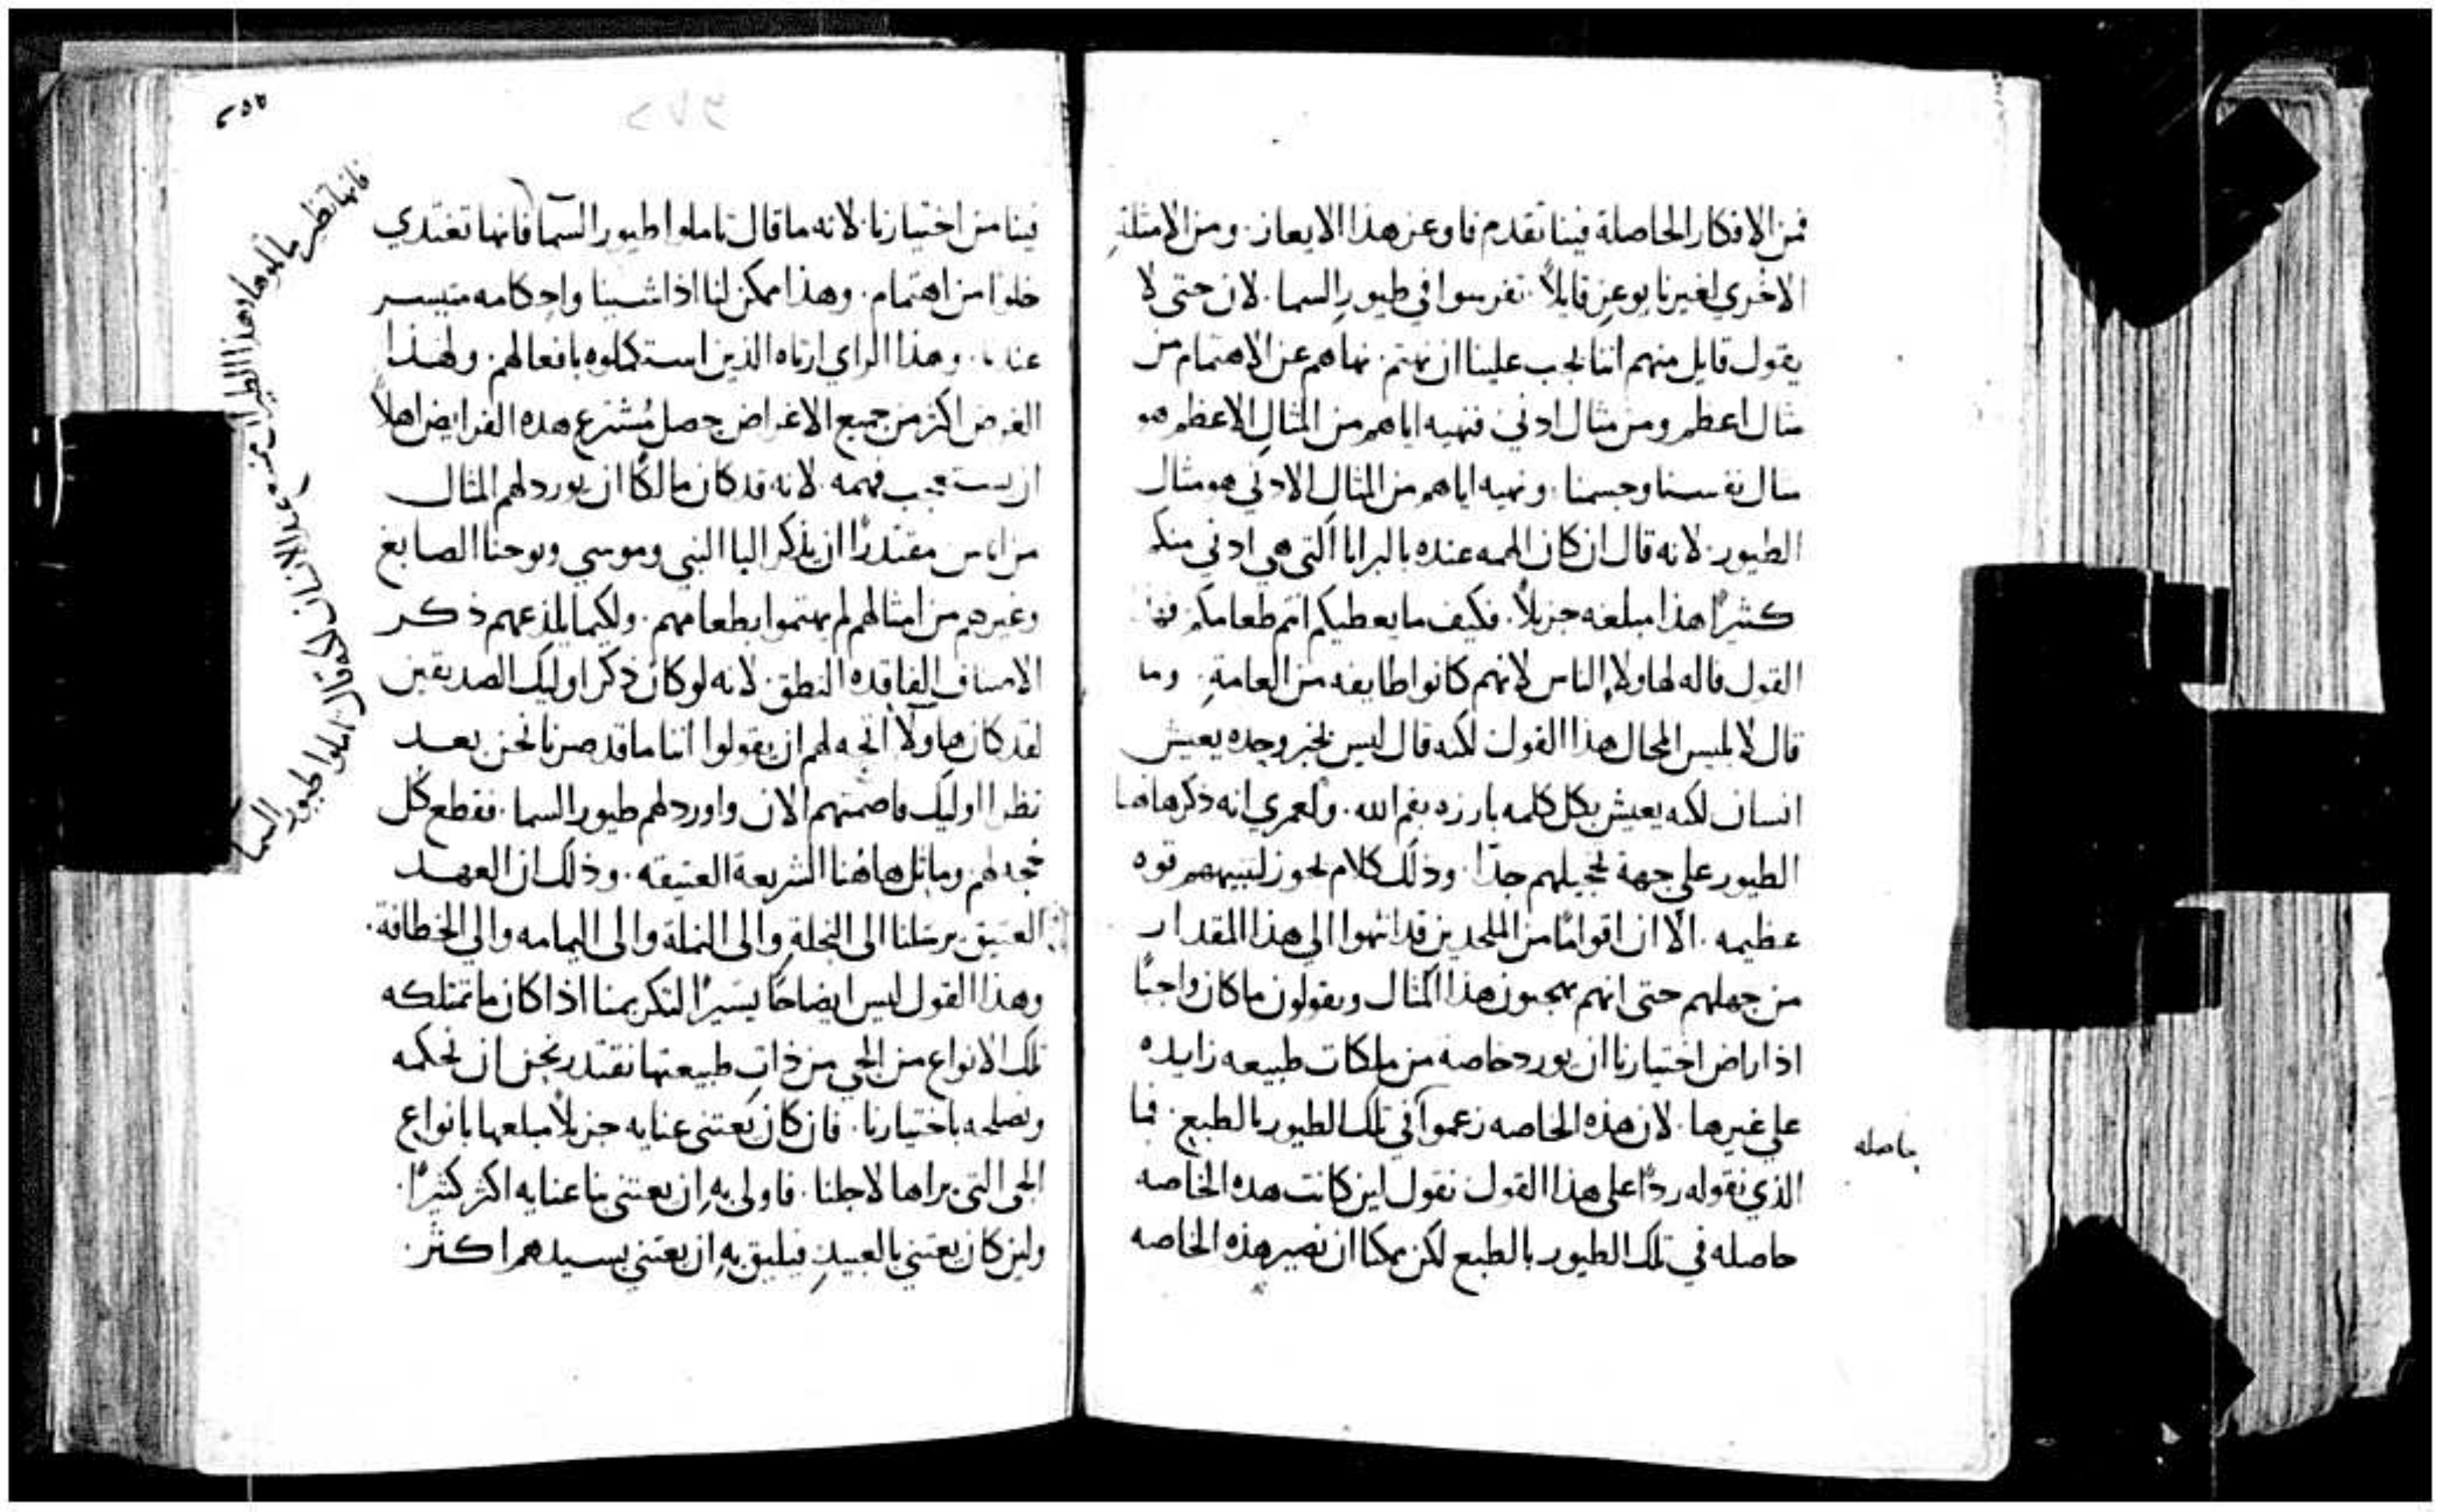 فمن الافكار الحاصلة فينا تقدم فاوعز هذا الايعاز. ومن الامثلة
الاخري لغيرنا يوعز قايلاً. تفرسوا في طيور السما. لان حتى لا
يقول قايل منهم اننا يجب علينا ان نهتم. نهاهم عن الاهتمام من
مثال اعظم ومن مثال ادني. فنهيه اياهم من المثال الاعظم هو
مثال نفسنا وجسمنا. ونهيه اياهم من المثال الادني هو مثال
الطيور. لانه قال ان كان الهمه عنده بالبرايا التي هي ادني منكم
كثيرًا هذا مبلغه جزيلاً. فكيف ما يعطيكم انتم طعامكم فهذا
القول قاله لهاولاء الناس لانهم كانوا طايفه من العامة. وما
قال لابليس المحال هذا القول لكنه قال ليس بخبز وحده يعيش
انسان لكنه يعيش بكل كلمه بارزه بفم الله. ولعمري انه ذكر هاهنا
الطيور علي جهة تخجيلهم جدًا. وذلك كلام يحوز لتنبيههم قوه
عظيمه. الا ان اقوامًا من الملحدين قد انتهوا الي هذا المقدار
من جهلهم حتى انهم يهجنون هذا المثال ويقولون ما كان واجبًا
اذا راض اختيارنا ان يورد خاصه من ملكات طبيعه زايده
علي غيرها. لان هذه الخاصه زعموا في تلك الطيور بالطبع. فما
الذي نقوله ردًا علي هذا القول نقول لين كانت هذه الخاصه
حاصله
حاصله في تلك الطيور بالطبع لكن يمكنا ان نصير هذه الخاصه
٢٥٥
فينا من اختيارنا. لانه ما قال تاملوا طيور السما فانها تغتدي
خلوا من اهتمام. وهذا ممكن لنا اذا شينا واحكامه متيسر
عندنا. وهذا الراي ارتاه الذين استكملوه بافعالهم. ولهذا
الغرض اكثر من جميع الاغراض حصل مُشترع هذه الفرايض اهلاً
ان يستعجب فهمه. لانه قد كان مالكًا ان يورد لهم المثال
من اناس مقتدرًا ان يذكر اليا النبي وموسي ويوحنا الصابغ
وغيرهم من امثالهم لم يهتموا بطعامهم. ولكيما يلذعهم ذكر
الاصناف الفاقده النطق. لانه لو كان ذكر اوليك الصديقين
لقد كان هاولا اتجه لهم ان يقولوا اننا ما قد صرنا نحن بعد
نظرا اوليك فاصمتهم الان واورد لهم طيور السما. فقطع كل
حجة لهم وماثل هاهنا الشريعة العتيقه. وذلك ان العهد
العتيق يرسلنا الى النحلة والى النملة والى اليمامه والي الخطافة.
وهذا القول ليس ايضاحًا يسيرًا لتكريمنا اذا كان ما تمتلكه
تلك الانواع من الحي من ذات طبيعتها نقتدر نحن ان نحكمه
ونصلحه باختيارنا. فان كان يعتني عنايه جزيلاً مبلغها بانواع
الحي التي براها لاجلنا. فاولى به ان يعتني بنا عنايه اكثر كثيرًا.
ولين كان يعتني بالعبيد فيليق به ان يعتني بسيدهم اكثر.
فانها تطير لكنه قال تاملوا طيور السما